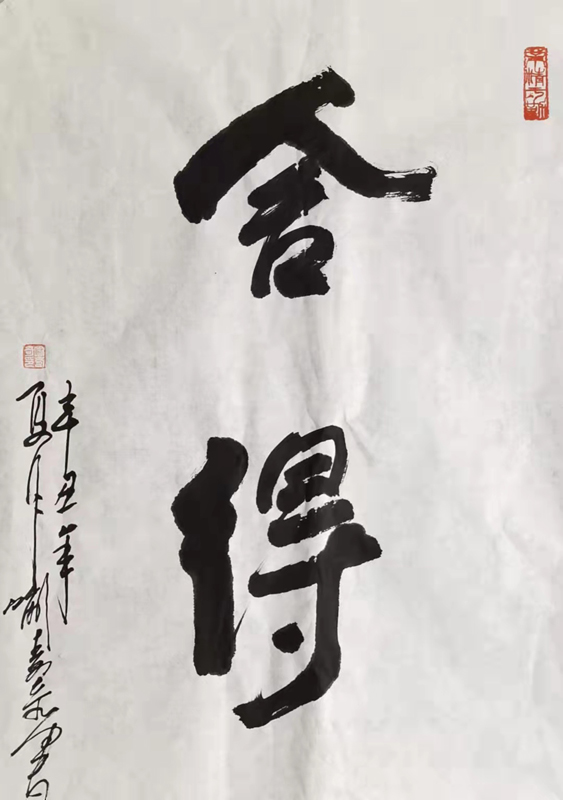 舍得
辛丑年
夏月
书